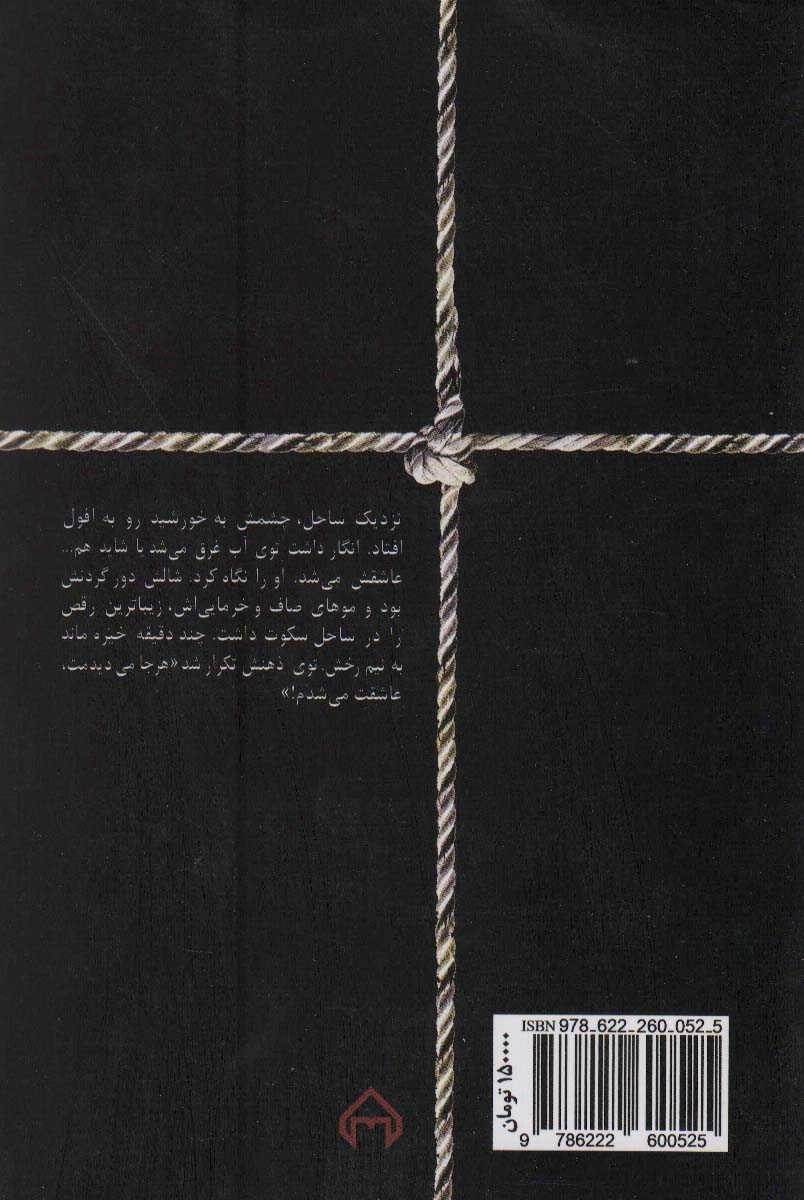 نزدیک ساحل، چشمش به خورشید رو به افول
افتاد. انگار داشت توی آب غرق می‌شد یا شاید هم...
عاشقش می‌شد. او را نگاه کرد. شالش دور گردنش
بود و موهای صاف و خرمایی‌اش، زیباترین رقص
را در ساحل سکوت داشت. چند دقیقه خیره ماند
به نیم رخش. توی ذهنش تکرار شد «هرجا می دیدمت،
عاشقت می‌شدم!»
ISBN 978_622_260_052_5
۱۵۰۰۰۰ تومان
9 786222 600525